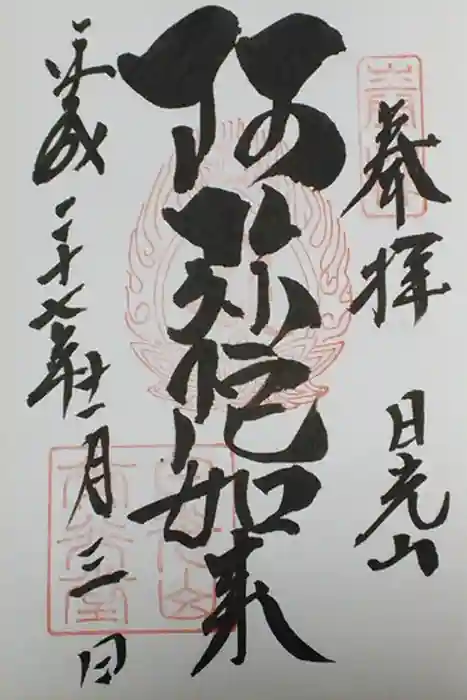 奉拝
日光山
阿弥陀如来
平成二十七年廿一月三日